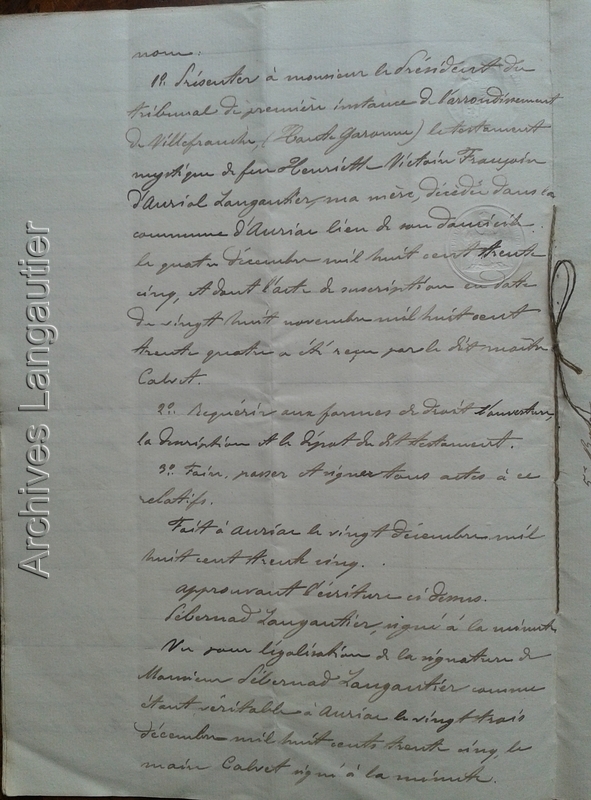 nom:
1º. Présenter à monsieur le Président du
tribunal de première instance de l'arrondissement
de Villefranche, (Haute Garonne) le testament
mystique de feu Henriette Victoire Françoise
d'Auriol Langautier, ma mère, décédée dans la
commune d'Auriac lieu de son domicile
le quatre décembre mil huit cent trente
cinq, et dont l'acte de suscription en date
du vingt huit novembre mil huit cent
trente quatre a été reçu par le dit maître
Calvet.
2º. Requérir aux formes de droit l'ouverture,
la description et le dépot du dit testament.
3º. Faire, passer et signer tous actes à ce
relatifs.
Fait à Auriac le vingt décembre mil
huit cent trente cinq.
approuvant l'écriture ci dessus.
Sébernad Langautier, signé à la minute
Vu pour légalisation de la signature de
Monsieur Sébernad Langautier comme
étant véritable à Auriac le vingt trois
décembre mil huit cents trente cinq, le
maire Calvet signé à la minute.
Archives Langautier